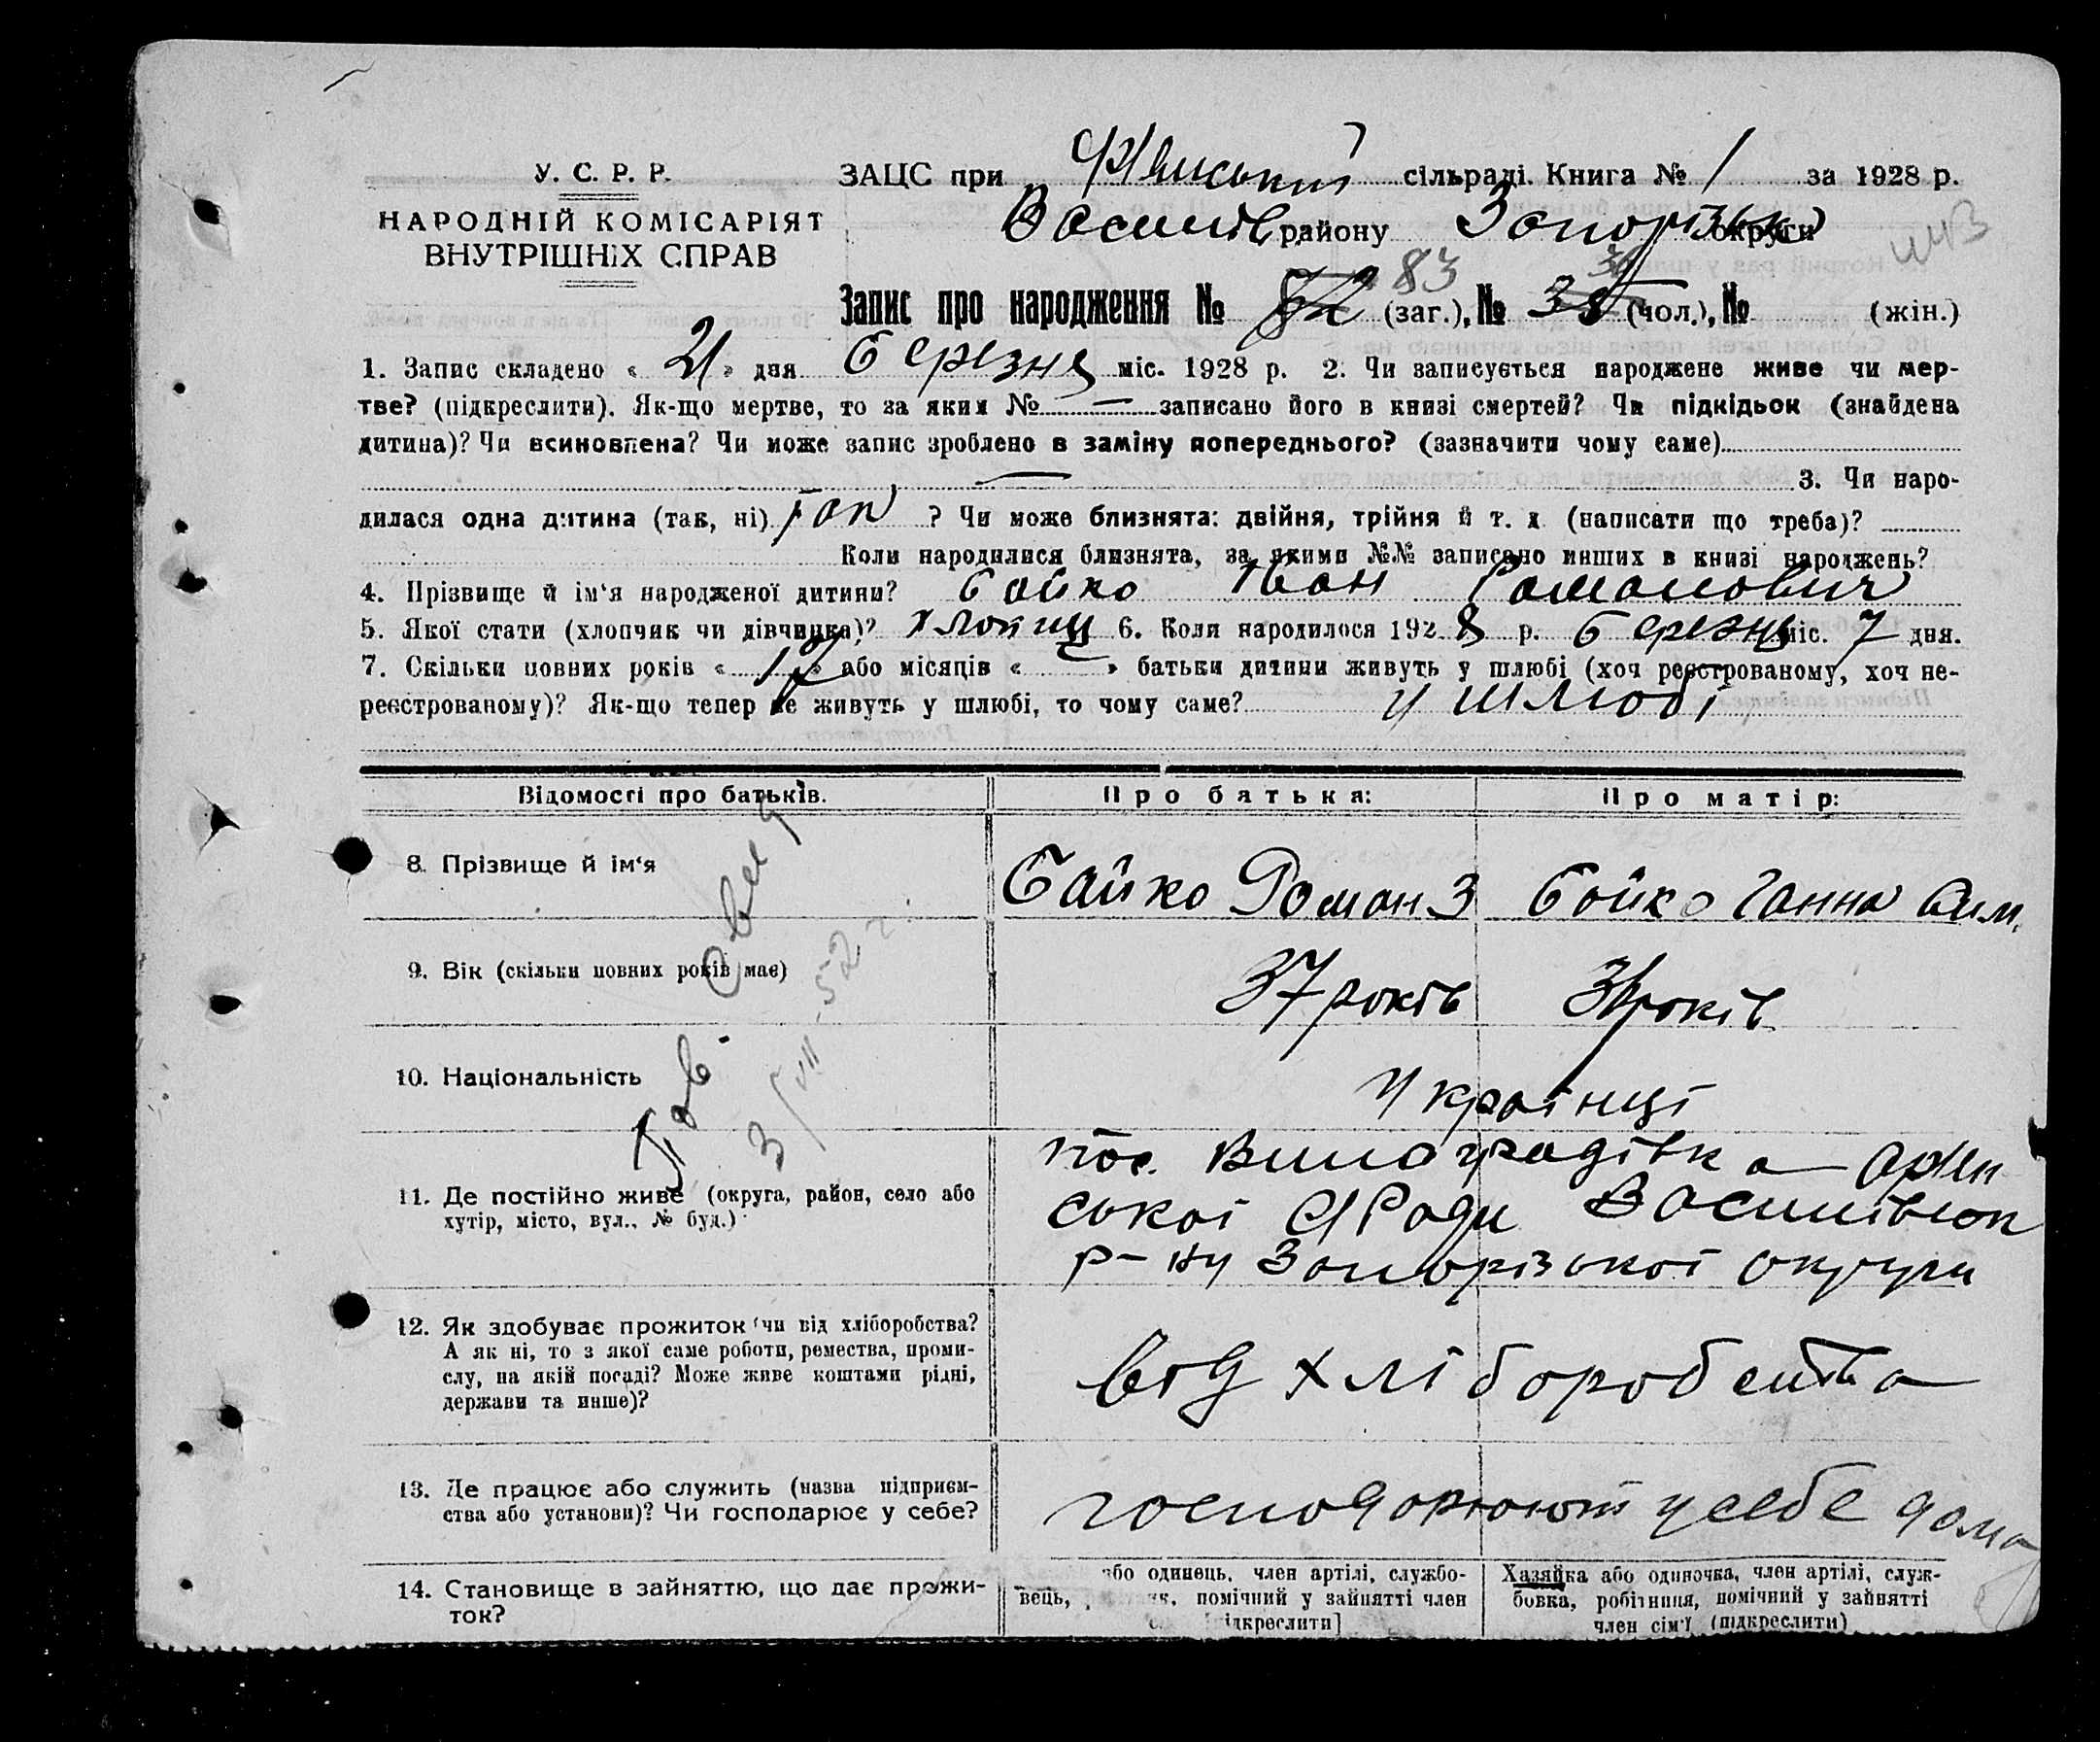 У. С. Р. Р.
НАРОДНІЙ КОМІСАРІЯТ
ВНУТРІШНІХ СПРАВ
ЗАЦС при сільраді. Книга № 1 за 1928 р.
Василів району Запорізької округи
Запис про народження № 83 (заг.), № (чол.), № (жін.)
1. Запис складено « 21 » дня березня міс. 1928 р. 2. Чи записується народжене живе чи мер-
тве? (підкреслити). Як-що мертве, то за яким № — записано його в книзі смертей? Чи підкідьок (знайдена
дитина)? Чи всиновлена? Чи може запис зроблено в заміну попереднього? (зазначити чому саме)
— 3. Чи наро-
дилася одна дитина (так, ні) так ? Чи може близнята: двійня, трійня й т. д. (написати що треба)?
Коли народилися близнята, за якими №№ записано инших в книзі народжень?
4. Прізвище й ім‘я народженої дитини? Бойко Іван Романович
5. Якої стати (хлопчик чи дівчинка)? хлопчик 6. Коли народилося 1928 р. березня міс. 7 дня.
7. Скільки повних років « » або місяців « » батьки дитини живуть у шлюбі (хоч реєстрованому, хоч не-
реєстрованому)? Як-що тепер не живуть у шлюбі, то чому саме? у шлюбі
Відомості про батьків. Про батька: Про матір:
8. Прізвище й ім‘я Байко Роман З Бойко Ганна
9. Вік (скільки повних років має) 37 років років
10. Національність Українці
11. Де постійно живе (округа, район, село або
хутір, місто, вул., № буд.)
пос. Виноградівка
ської с/Ради Василівськ
р-ну Запорізької округи
12. Як здобуває прожиток (чи від хліборобства?
А як ні, то з якої саме роботи, ремества, проми-
слу, на якій посаді? Може живе коштами рідні,
держави та инше)?
від хліборобства
13. Де працює або служить (назва підприєм-
ства або установи)? Чи господарює у себе?
господорюют у себе дома
14. Становище в зайняттю, що дає прожи-
ток?
або одинець, член артілі, службо-
вець, помічний у зайнятті член
Хазяйка або одиночка, член артілі, служ-
бовка, робітниця, помічний у зайнятті
член сім'ї (підкреслити)